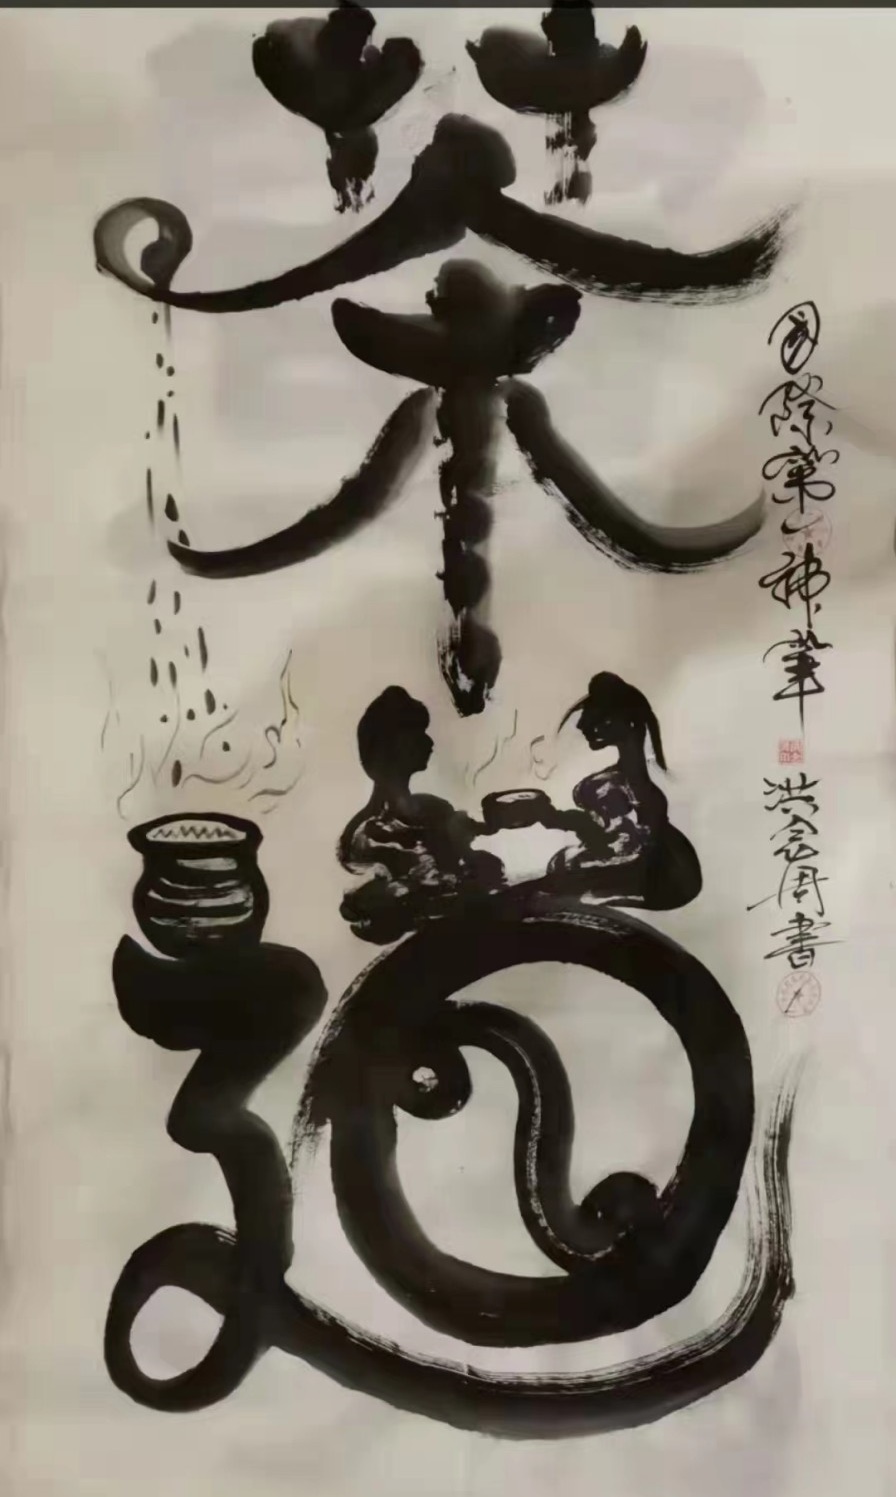 茶道
国际第一神筆
洪会周書